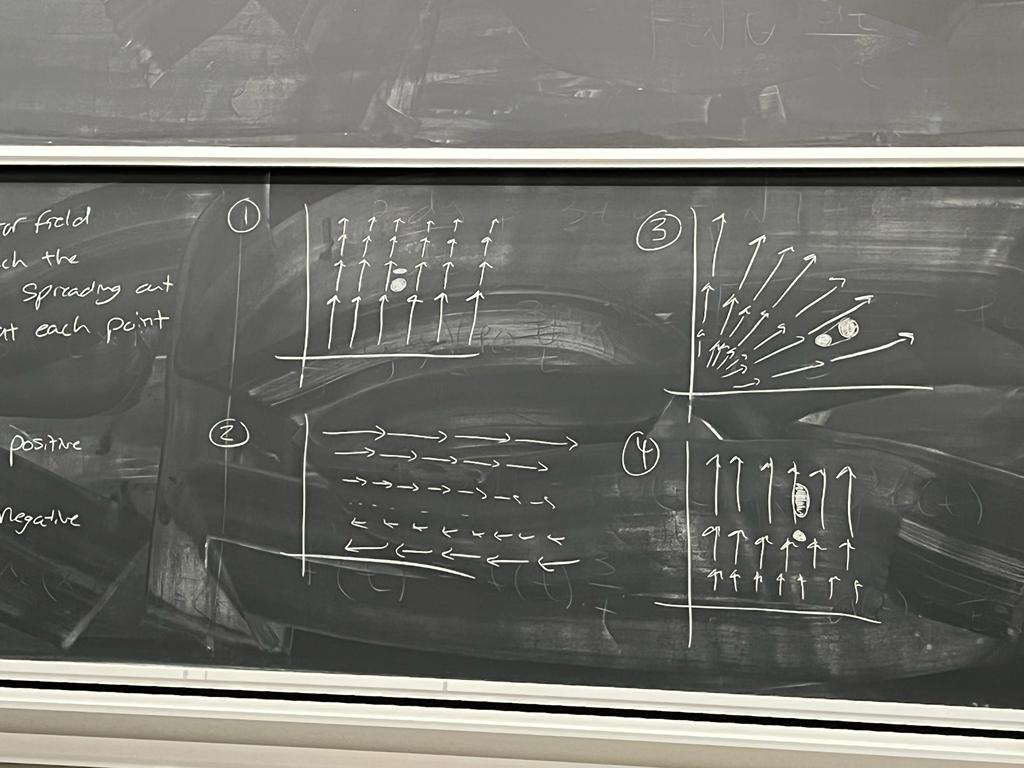 field
the
spreading out
at each point
positive
negative
①
②
③
④